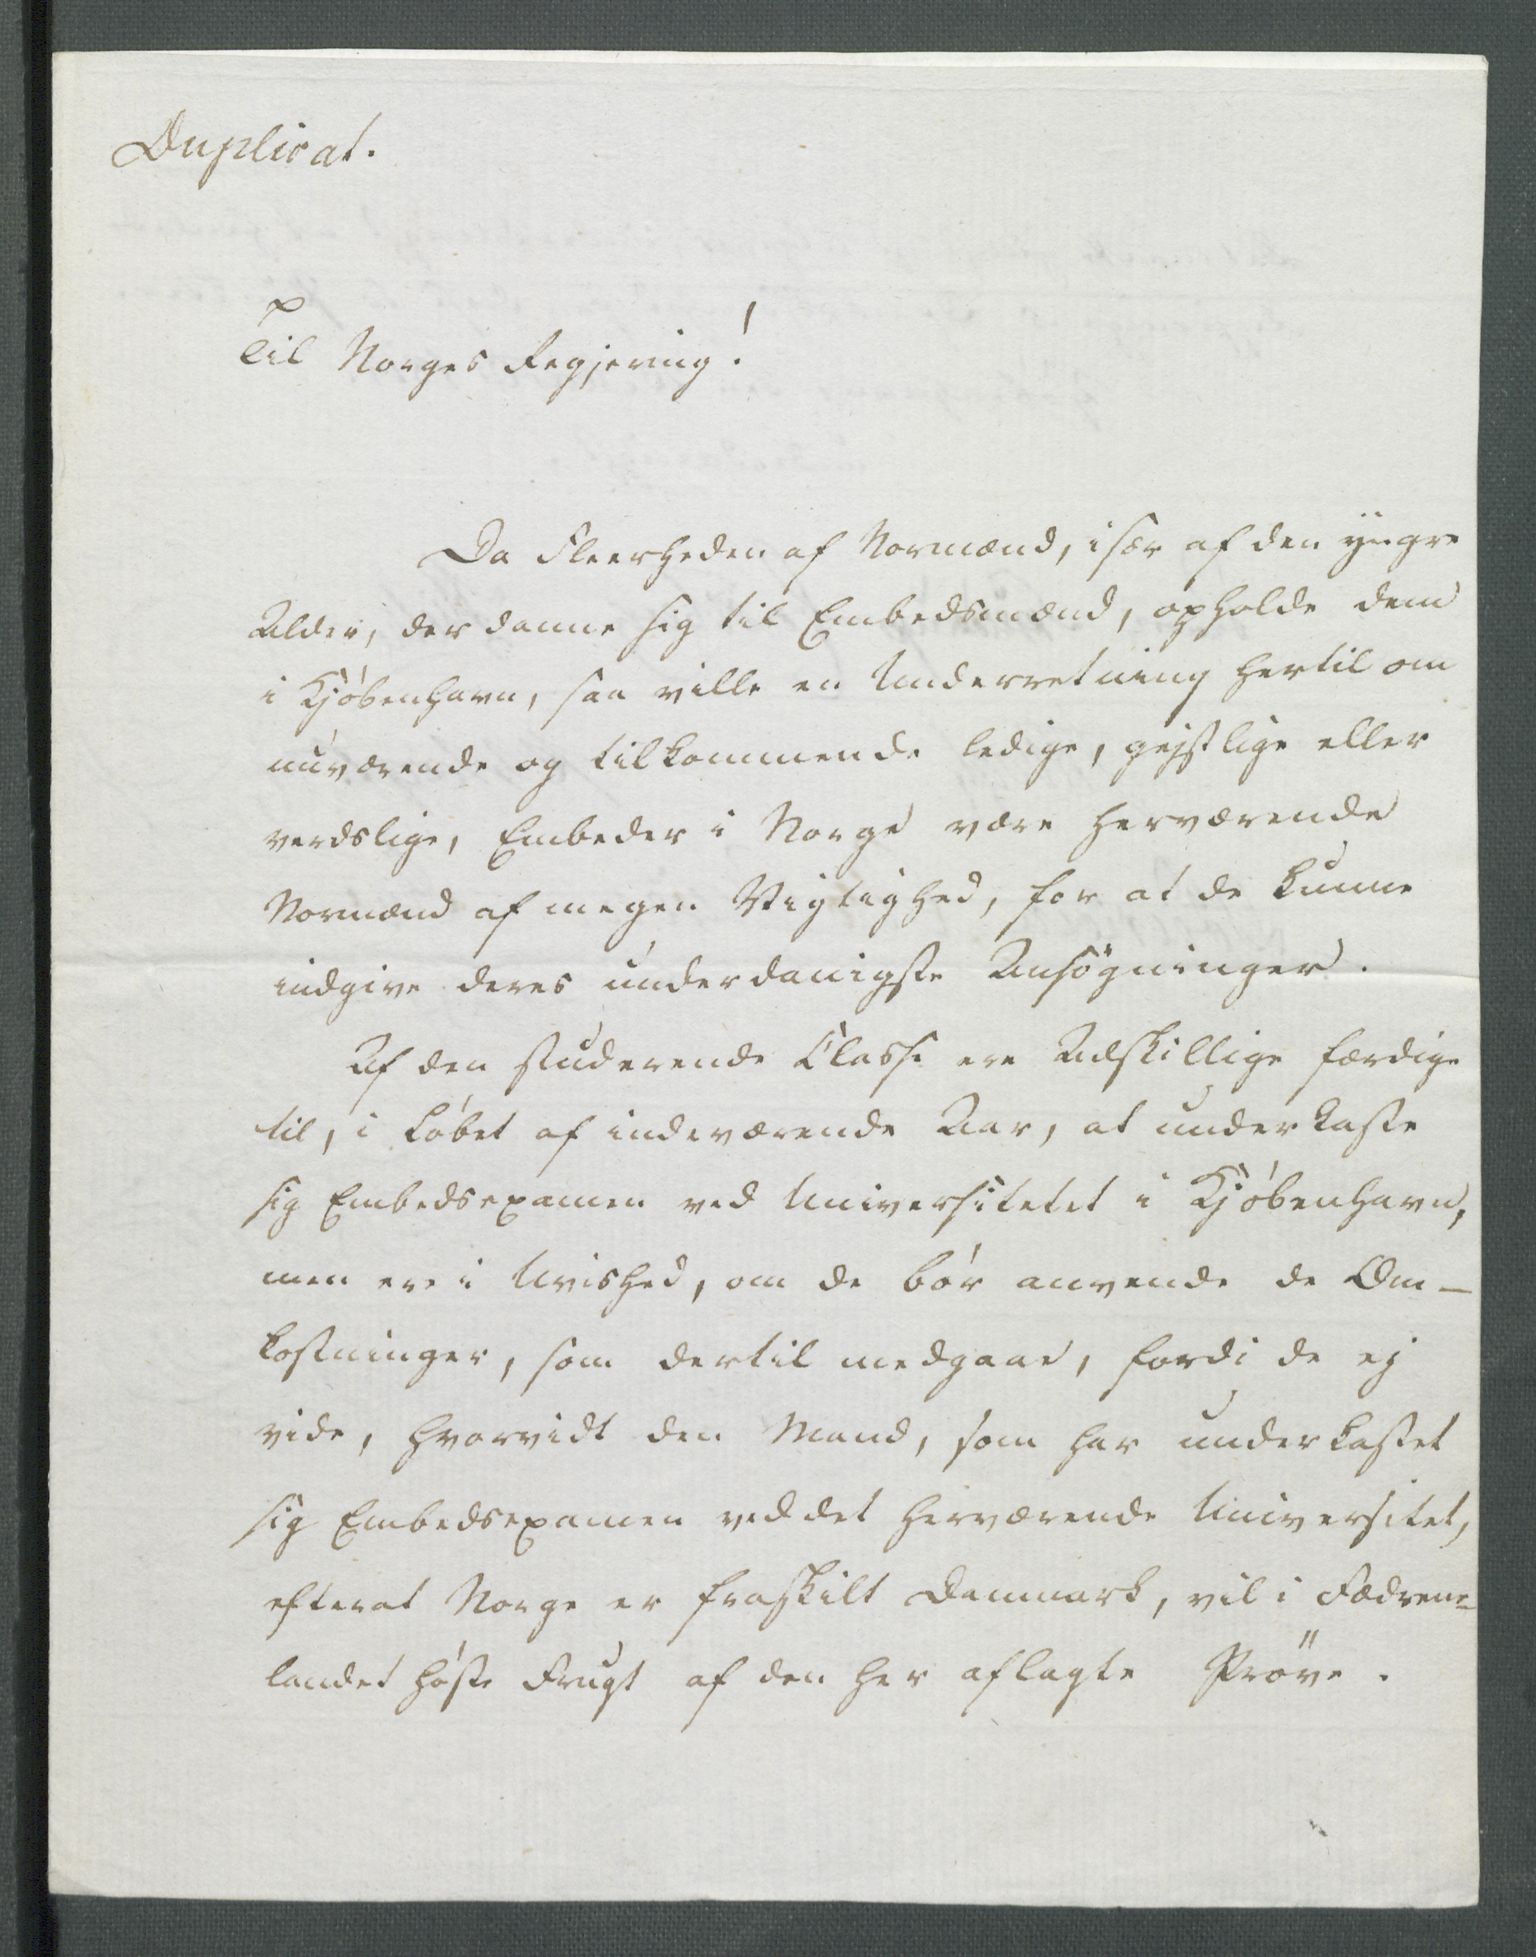 Duplicat.
Til Norges Regjering!
Da Fleerheden af Normænd, især af den yngre
Alder, der danne sig til Embedsmænd, opholde dem
i Kjöbenhavn, saa ville en Underretning hertil om
nuværende og tilkommende ledige, gejstlige eller
verdslige, Embeder i Norge være herværende
Normænd af megen Vigtighed, for at de kunne
indgive deres underdanigste Ansögninger.
Af den studerende Classe ere Adskillige færdige
til, i Löbet af indeværende Aar, at underkaste
sig Embedsexamen ved Universitetet i Kjöbenhavn,
men ere i Uvished, om de bör anvende de Om-
kostninger, som dertil medgaae, fordi de ej
vide, hvorvidt den Mand, som har underkastet
sig Embedsexamen ved det herværende Universitet,
efterat Norge er fraskilt Danmark, vil i Fædrene-
landet höste Frugt af den her aflagte Pröve.